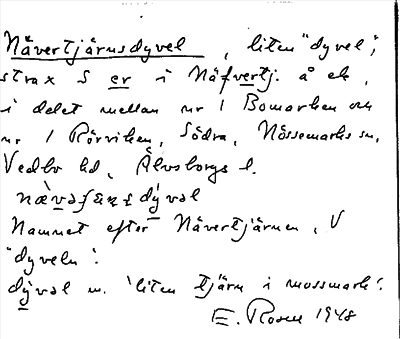 Nävertjärnsdyvel, liten "dyvel",
strax S er i Näfvertj. å ek.
i delet mellan nr 1 Bomarken och
nr 1 Rörviken, Södra, Nössemarks sn,
Vedbo hd, Älvsborgs l.
Namnet efter Nävertjärnen, V
"dyveln".
dy̱vəl m. 'liten tjärn i mossmark'.
E. Rosen 1948